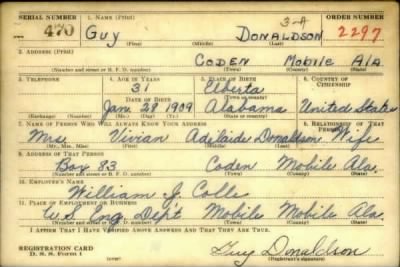 SERIAL NUMBER 1. NAME (Print) ORDER NUMBER
470 Guy Donaldson 3-A 2297
(First) (Middle) (Last)
2. ADDRESS (Print)
Coden Mobile Ala
(Number and street or R. F. D. number) (Town) (County) (State)
3. TELEPHONE 4. AGE IN YEARS 5. PLACE OF BIRTH 6. COUNTRY OF CITIZENSHIP
31 Elberta
DATE OF BIRTH (Town or county)
Jan. 28 1909 Alabama United States
(Exchange) (Number) (Mo.) (Day) (Yr.) (State or country)
7. NAME OF PERSON WHO WILL ALWAYS KNOW YOUR ADDRESS 8. RELATIONSHIP OF THAT PERSON
Mrs Vivian Adelaide Donaldson Wife
(Mr., Mrs., Miss) (First) (Middle) (Last)
9. ADDRESS OF THAT PERSON
Box 83 Coden Mobile Ala.
(Number and street or R. F. D. number) (Town) (County) (State)
10. EMPLOYER'S NAME
William J. Colle
11. PLACE OF EMPLOYMENT OR BUSINESS
U.S. Eng Dep't Mobile Mobile Ala.
(Number and street or R. F. D. number) (Town) (County) (State)
I AFFIRM THAT I HAVE VERIFIED ABOVE ANSWERS AND THAT THEY ARE TRUE.
REGISTRATION CARD
D. S. S. Form 1 Guy Donaldson
(over) (Registrant's signature)